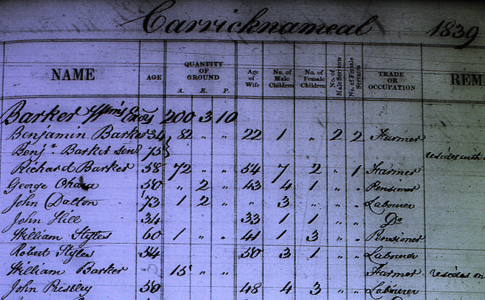 Carricknameal 1839
NAME AGE QUANTITY OF GROUND A. R. P. Age of Wife No. of Male Children No. of Female Children No. of Male Servants No. of Female Servants TRADE OR OCCUPATION REM
Barker 200 3 10
Benjamin Barker 34 82 " " 22 1 " 2 2 Farmer
Benjn Barker Senr 75
Richard Barker 58 72 " " 54 7 2 " 1 Farmer
George 50 " 2 " 43 4 1 Pensioner
John Dalton 73 1 2 " " 3 Labourer
John Hill 34 33 1 1 Do
William Styles 60 1 " " 41 1 3 Pensioner
Robert Styles 54 50 3 1 Labourer
William Barker 15 " " Farmer
John 50 48 4 3 Labourer